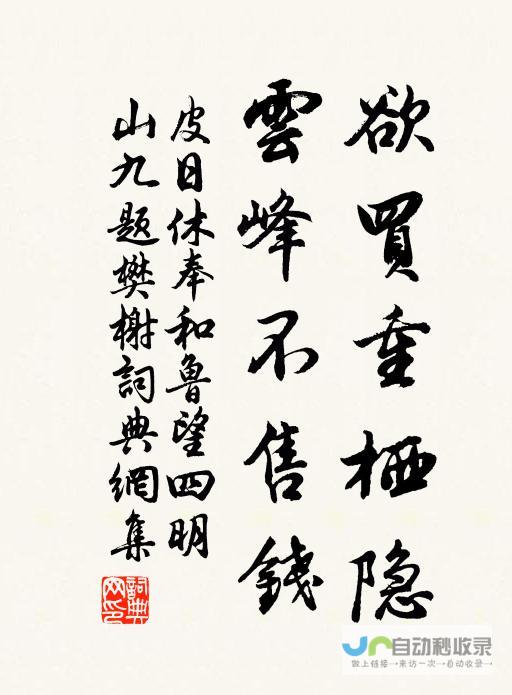 欲買重栖隐
雲峰不售錢
皮日休奉和鲁望四明
山九题樊榭詞典網集
詞典
网印
自动秒收录
做上链接→来访一次→自动收录